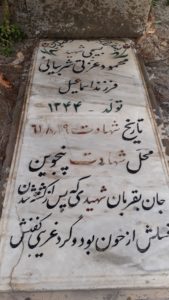 محمود عزتی شربیانی
فرزند اسماعیل
تولد - ۱۳۴۴
تاریخ شهادت ۶۱،۸،۱۹
محل شهادت پنجوین
جان بقربان شهیدی که پس از کشته شدن
غسلش از خون بود و گرد عزیزی کفنش